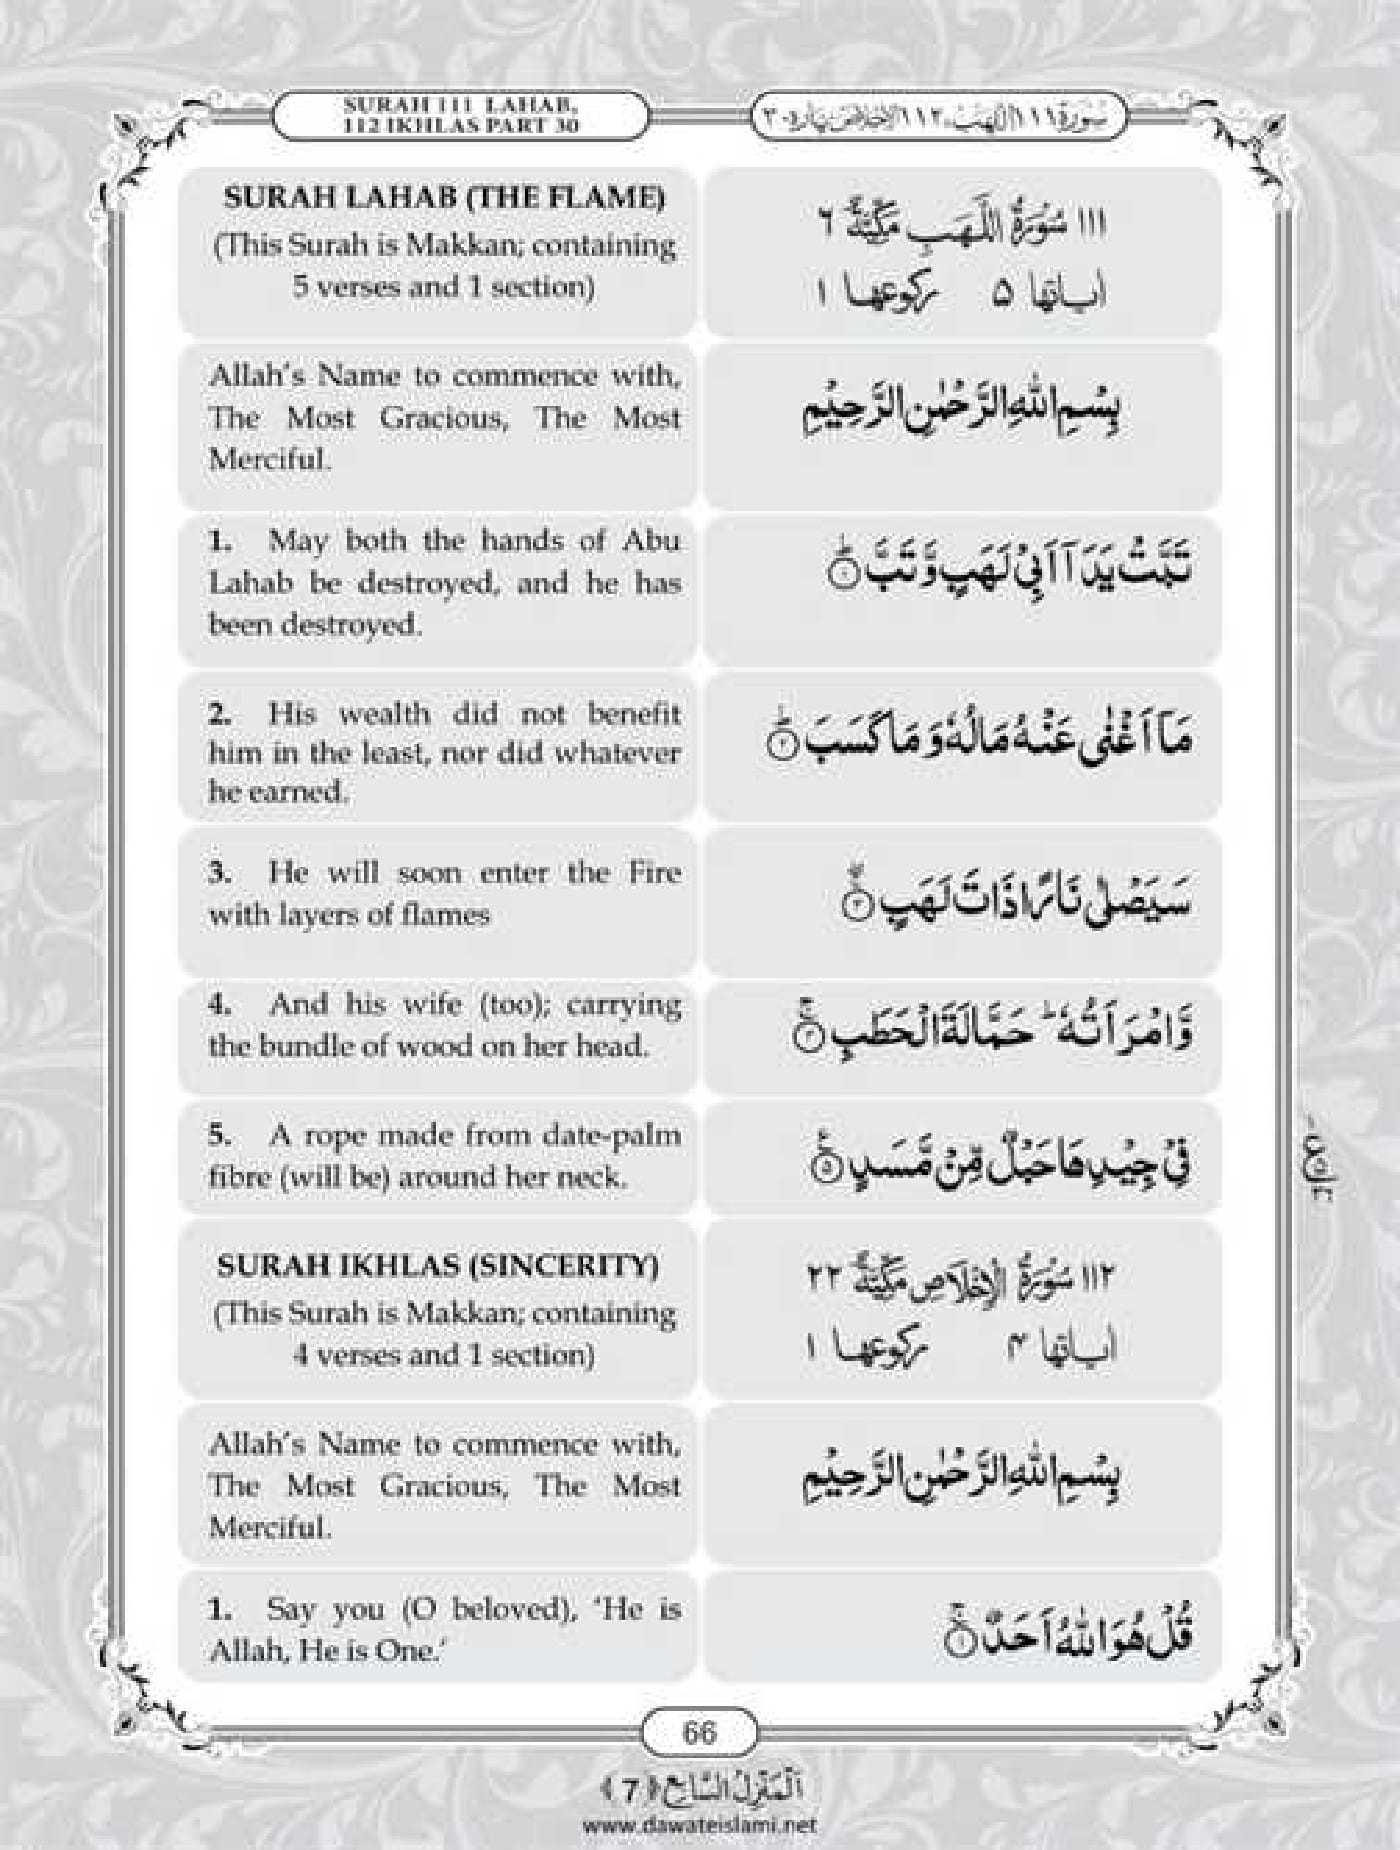 SURAH 111 LAHAB,
112 IKHLAS PART 30
سُوْرَةُ ١١١ اللَّهَب، ١١٢ الْاِخْلَاص پارہ ٣٠
SURAH LAHAB (THE FLAME)
(This Surah is Makkan; containing
5 verses and 1 section)
١١١ سُوْرَةُ اللَّهَبِ مَكِّيَّةٌ ٦
اٰیاتها ۵ رکوعها ١
Allah's Name to commence with,
The Most Gracious, The Most
Merciful.
بِسْمِ اللّٰهِ الرَّحْمٰنِ الرَّحِیْمِ
1. May both the hands of Abu
Lahab be destroyed, and he has
been destroyed.
تَبَّتْ یَدَاۤ اَبِیْ لَهَبٍ وَّ تَبَّؕ ﴿۱﴾
2. His wealth did not benefit
him in the least, nor did whatever
he earned.
مَاۤ اَغْنٰى عَنْهُ مَالُهٗ وَ مَا كَسَبَؕ ﴿۲﴾
3. He will soon enter the Fire
with layers of flames
سَیَصْلٰى نَارًا ذَاتَ لَهَبٍۚۖ ﴿۳﴾
4. And his wife (too); carrying
the bundle of wood on her head.
وَّ امْرَاَتُهٗؕ حَمَّالَةَ الْحَطَبِۚ ﴿۴﴾
5. A rope made from date-palm
fibre (will be) around her neck.
فِیْ جِیْدِهَا حَبْلٌ مِّنْ مَّسَدٍ۠ ﴿۵﴾
SURAH IKHLAS (SINCERITY)
(This Surah is Makkan; containing
4 verses and 1 section)
١١٢ سُوْرَةُ الْاِخْلَاصِ مَكِّيَّةٌ ٢٢
اٰیاتها ۴ رکوعها ١
Allah's Name to commence with,
The Most Gracious, The Most
Merciful.
بِسْمِ اللّٰهِ الرَّحْمٰنِ الرَّحِیْمِ
1. Say you (O beloved), 'He is
Allah, He is One.'
قُلْ هُوَ اللّٰهُ اَحَدٌۚ ﴿۱﴾
66
اَلْمَنْزِلُ السَّابِع ﴿7﴾
www.dawateislami.net